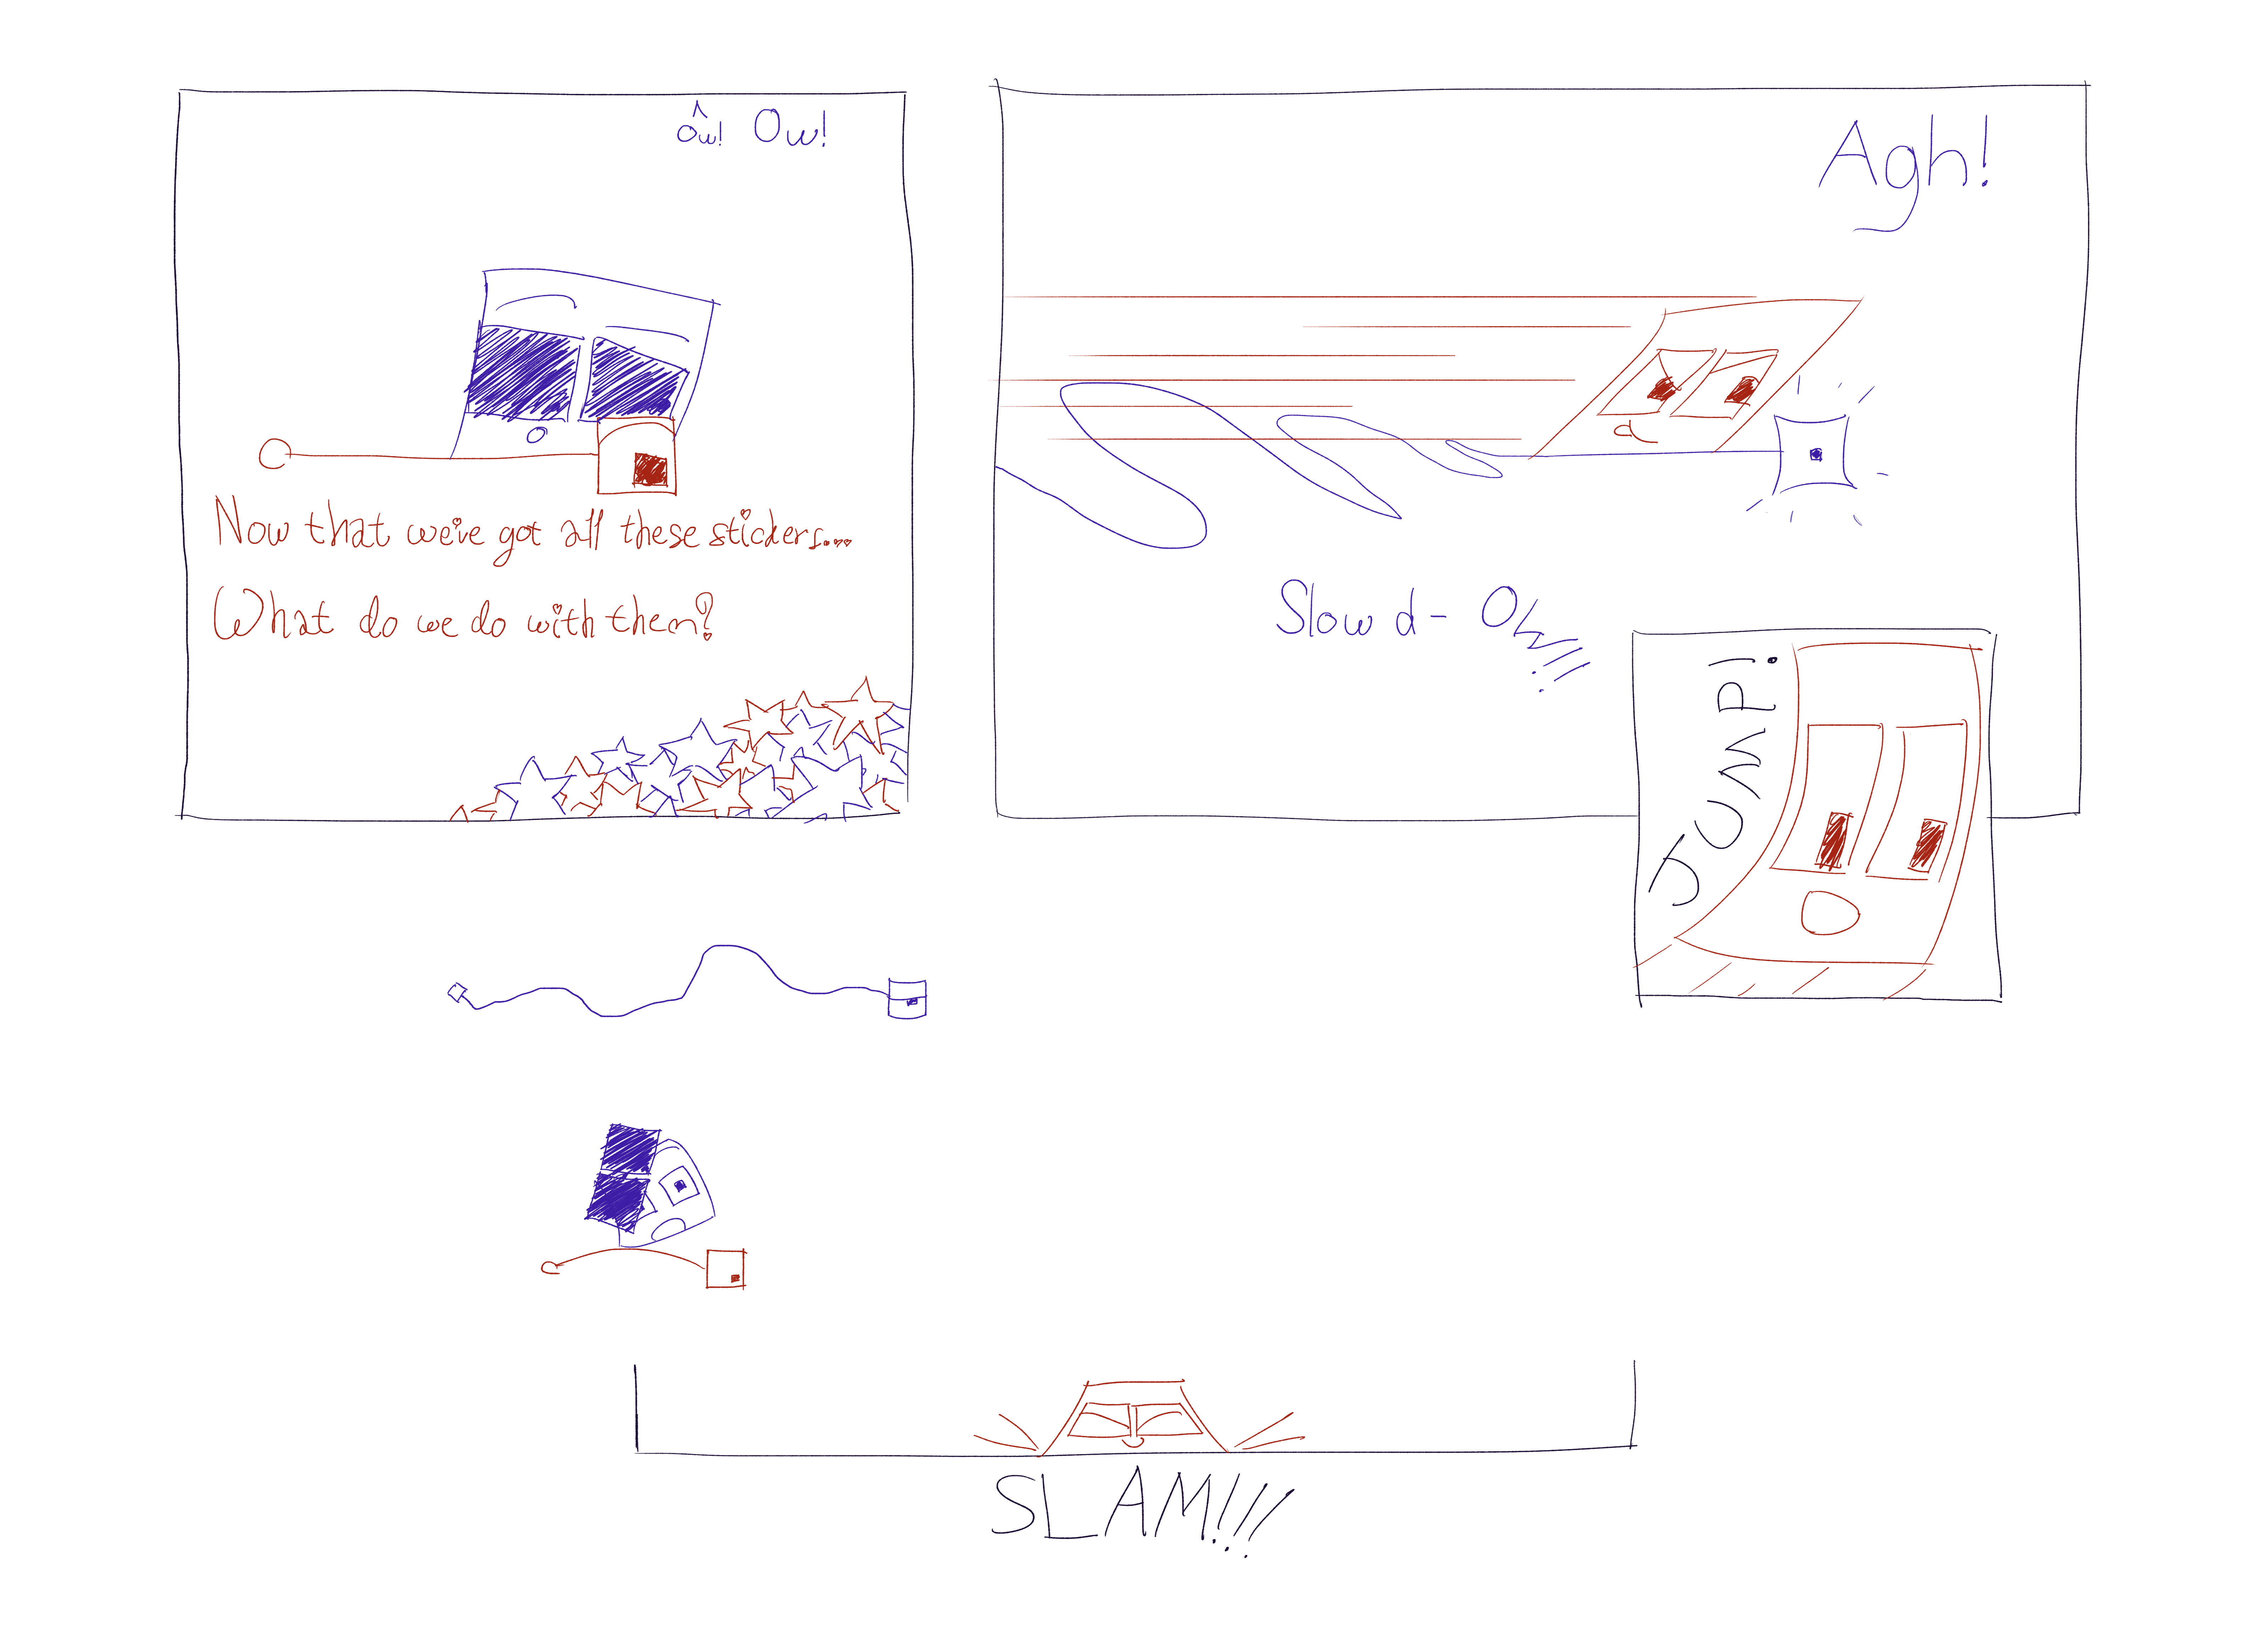 Ow! Ow!
Now that we've got all these stickers...
What do we do with them?
Agh!
Slow d- OW!!!
JUMP!
SLAM!!!